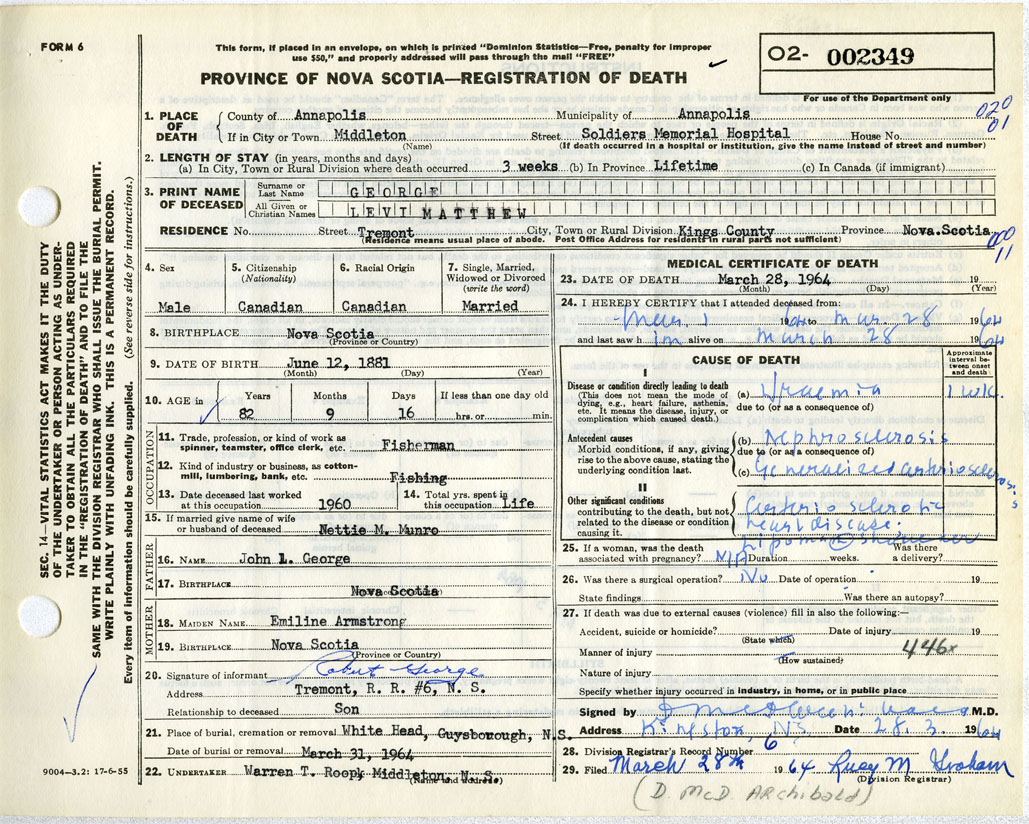 FORM 6
This form, if placed in an envelope, on which is printed "Dominion Statistics—Free, penalty for improper
use $50," and properly addressed will pass through the mail "FREE"
PROVINCE OF NOVA SCOTIA—REGISTRATION OF DEATH
O2- 002349
For use of the Department only
020
01
1. PLACE OF DEATH
County of Annapolis Municipality of Annapolis
If in City or Town Middleton Street Soldiers Memorial Hospital House No.
(Name) (If death occurred in a hospital or institution, give the name instead of street and number)
2. LENGTH OF STAY (in years, months and days)
(a) In City, Town or Rural Division where death occurred 3 weeks (b) In Province Lifetime (c) In Canada (if immigrant)
3. PRINT NAME OF DECEASED
Surname or Last Name GEORGE
All Given or Christian Names LEVI MATTHEW
RESIDENCE No. Street Tremont City, Town or Rural Division Kings County Province Nova Scotia
(Residence means usual place of abode. Post Office Address for residents in rural parts not sufficient)
000
11
4. Sex
Male
5. Citizenship
(Nationality)
Canadian
6. Racial Origin
Canadian
7. Single, Married,
Widowed or Divorced
(write the word)
Married
8. BIRTHPLACE Nova Scotia
(Province or Country)
9. DATE OF BIRTH June 12, 1881
(Month) (Day) (Year)
10. AGE in
Years Months Days If less than one day old
82 9 16 hrs. or min.
OCCUPATION
11. Trade, profession, or kind of work as
spinner, teamster, office clerk, etc. Fisherman
12. Kind of industry or business, as cotton-
mill, lumbering, bank, etc. Fishing
13. Date deceased last worked
at this occupation 1960
14. Total yrs. spent in
this occupation Life
15. If married give name of wife
or husband of deceased Nettie M. Munro
FATHER
16. NAME John L. George
17. BIRTHPLACE Nova Scotia
MOTHER
18. MAIDEN NAME Emiline Armstrong
19. BIRTHPLACE Nova Scotia
(Province or Country)
20. Signature of informant Robert George
Address Tremont, R. R. #6, N. S.
Relationship to deceased Son
21. Place of burial, cremation or removal White Head, Guysborough, N.S.
Date of burial or removal March 31, 1964
22. UNDERTAKER Warren T. Roop, Middleton, N. S.
(Name and address)
MEDICAL CERTIFICATE OF DEATH
23. DATE OF DEATH March 28, 1964 19
(Month) (Day) (Year)
24. I HEREBY CERTIFY that I attended deceased from:
Mar. 1 1964 to Mar. 28 1964
and last saw h im alive on March 28 1964
CAUSE OF DEATH
Approximate
interval be-
tween onset
and death
I
Disease or condition directly leading to death
(This does not mean the mode of
dying, e.g., heart failure, asthenia,
etc. It means the disease, injury, or
complication which caused death.)
(a) Uraemia 1 wk.
due to (or as a consequence of)
Antecedent causes
Morbid conditions, if any, giving
rise to the above cause, stating the
underlying condition last.
(b) Nephrosclerosis
due to (or as a consequence of)
(c) Generalized arteriosclerosis
II
Other significant conditions
contributing to the death, but not
related to the disease or condition
causing it.
Arteriosclerotic
heart disease.
Lipoma R shoulder
25. If a woman, was the death
associated with pregnancy? N/A Duration weeks. Was there
a delivery?
26. Was there a surgical operation? No Date of operation 19
State findings Was there an autopsy?
27. If death was due to external causes (violence) fill in also the following:—
Accident, suicide or homicide? Date of injury 19
(State which)
Manner of injury 446x
(How sustained)
Nature of injury
Specify whether injury occurred in industry, in home, or in public place
Signed by M.D.
Address Kingston, N.S. Date 28. 3. 1964
28. Division Registrar's Record Number 6
29. Filed March 28th 1964 Ruey M Graham
(Division Registrar)
(D. McD. ARCHIBALD)
9004—3.2: 17-6-55
SEC. 14—VITAL STATISTICS ACT MAKES IT THE DUTY
OF THE UNDERTAKER OR PERSON ACTING AS UNDER-
TAKER TO OBTAIN ALL THE PARTICULARS REQUIRED
IN THE "REGISTRATION OF DEATH" AND TO FILE THE
SAME WITH THE DIVISION REGISTRAR WHO SHALL ISSUE THE BURIAL PERMIT.
WRITE PLAINLY WITH UNFADING INK. THIS IS A PERMANENT RECORD.
Every item of information should be carefully supplied. (See reverse side for instructions.)